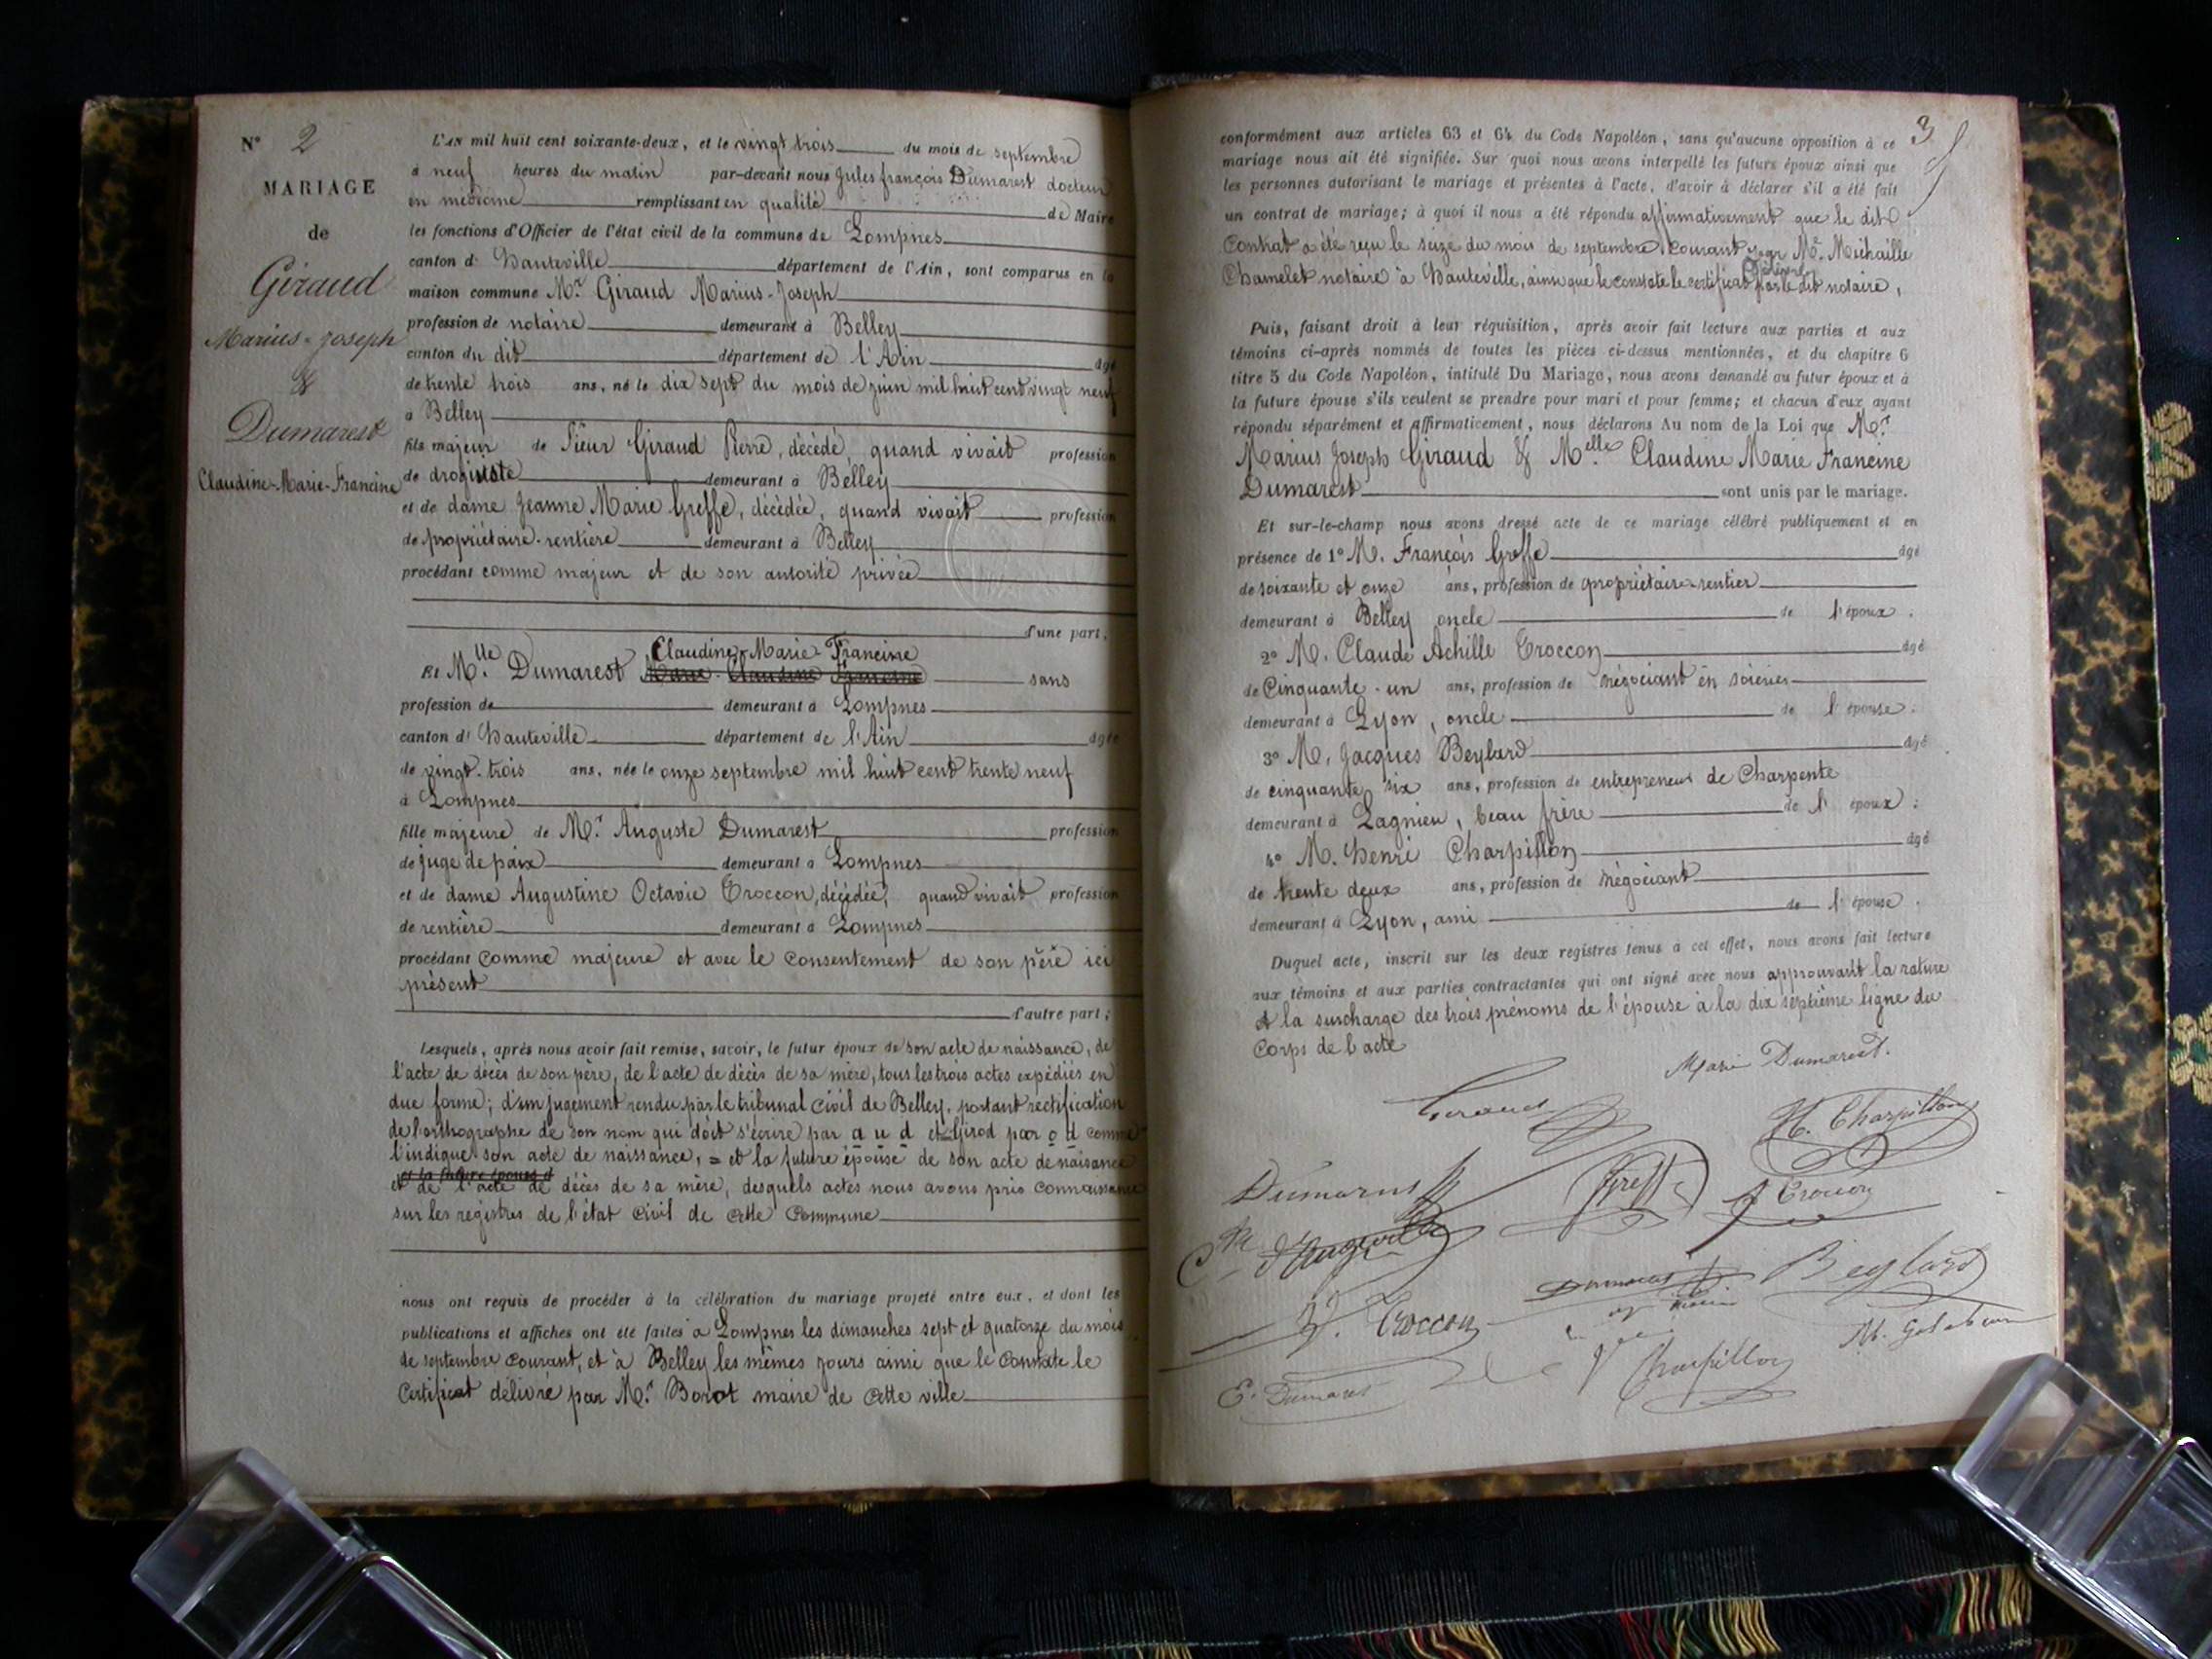 N° 2
MARIAGE
de
Giraud
Marius-Joseph
&
Dumarest
Claudine-Marie-Francine
L'AN mil huit cent soixante-deux, et le vingt trois du mois de septembre
à neuf heures du matin par-devant nous Jules françois Dumarest docteur
en médecine remplissant en qualité de Maire
les fonctions d'Officier de l'état civil de la commune de Lompnes
canton d' Hauteville département de l'Ain, sont comparus en la
maison commune Mr Giraud Marius-Joseph
profession de notaire demeurant à Belley
canton du dit département de l'Ain âgé
de trente trois ans, né le dix sept du mois de juin mil huit cent vingt neuf
à Belley
fils majeur de Sieur Giraud Pierre, décédé, quand vivait profession
de drogiste demeurant à Belley
et de dame Jeanne Marie Greffe, décédée, quand vivait profession
de propriétaire-rentière demeurant à Belley
procédant comme majeur et de son autorité privée
d'une part;
Claudine-Marie-Francine
Et Mlle Dumarest Marie-Claudine Francine sans
profession de demeurant à Lompnes
canton d' Hauteville département de l'Ain âgée
de vingt-trois ans, née le onze septembre mil huit cent trente neuf
à Lompnes
fille majeure de Mr Auguste Dumarest profession
de juge de paix demeurant à Lompnes
et de dame Augustine Octavie Troccon, décédée, quand vivait profession
de rentière demeurant à Lompnes
procédant comme majeure et avec le consentement de son père ici
présent
d'autre part;
Lesquels, après nous avoir fait remise, savoir, le futur époux de son acte de naissance, de
l'acte de décès de son père, de l'acte de décès de sa mère, tous les trois actes expédiés en
due forme; d'un jugement rendu par le tribunal civil de Belley, portant rectification
de l'orthographe de son nom qui doit s'écrire par a u d et Girod par o d comme
l'indique son acte de naissance, = et la future épouse de son acte de naissance
et la future épouse d
et de l'acte de décès de sa mère, desquels actes nous avons pris connaissance
sur les registres de l'état civil de cette commune
nous ont requis de procéder à la célébration du mariage projeté entre eux, et dont les
publications et affiches ont été faites à Lompnes les dimanches sept et quatorze du mois
de septembre courant, et à Belley les mêmes jours ainsi que le constate le
certificat délivré par Mr Borot maire de cette ville
3
conformément aux articles 63 et 64 du Code Napoléon, sans qu'aucune opposition à ce
mariage nous ait été signifiée. Sur quoi nous avons interpellé les futurs époux ainsi que
les personnes autorisant le mariage et présentes à l'acte, d'avoir à déclarer s'il a été fait
un contrat de mariage; à quoi il nous a été répondu affirmativement que le dit
contrat a été reçu le seize du mois de septembre courant par Mr Michaille
délivré
Chamelet notaire à Hauteville, ainsi que le constate le certificat par le dit notaire,
Puis, faisant droit à leur réquisition, après avoir fait lecture aux parties et aux
témoins ci-après nommés de toutes les pièces ci-dessus mentionnées, et du chapitre 6
titre 5 du Code Napoléon, intitulé Du Mariage, nous avons demandé au futur époux et à
la future épouse s'ils veulent se prendre pour mari et pour femme; et chacun d'eux ayant
répondu séparément et affirmativement, nous déclarons Au nom de la Loi que Mr
Marius Joseph Giraud & Melle Claudine Marie Francine
Dumarest sont unis par le mariage.
Et sur-le-champ nous avons dressé acte de ce mariage célébré publiquement et en
présence de 1° M. François Greffe âgé
de soixante et onze ans, profession de propriétaire-rentier
demeurant à Belley oncle de l'époux.
2° M. Claude Achille Troccon âgé
de Cinquante-un ans, profession de négociant en soieries
demeurant à Lyon, oncle de l'épouse.
3° M. Jacques Beylard âgé
de cinquante six ans, profession de entrepreneur de Charpente
demeurant à Lagnieu, beau frère de l'époux;
4° M. Henri Charpillon âgé
de trente deux ans, profession de négociant
demeurant à Lyon, ami de l'épouse.
Duquel acte, inscrit sur les deux registres tenus à cet effet, nous avons fait lecture
aux témoins et aux parties contractantes qui ont signé avec nous approuvant la rature
et la surcharge des trois prénoms de l'épouse à la dix septième ligne du
corps de l'acte
Marie Dumarest.
Giraud
H. Charpillon
Dumarest
Greffe
Troccon
Beylard
Dumarest
Troccon
E. Dumarest
Charpillon